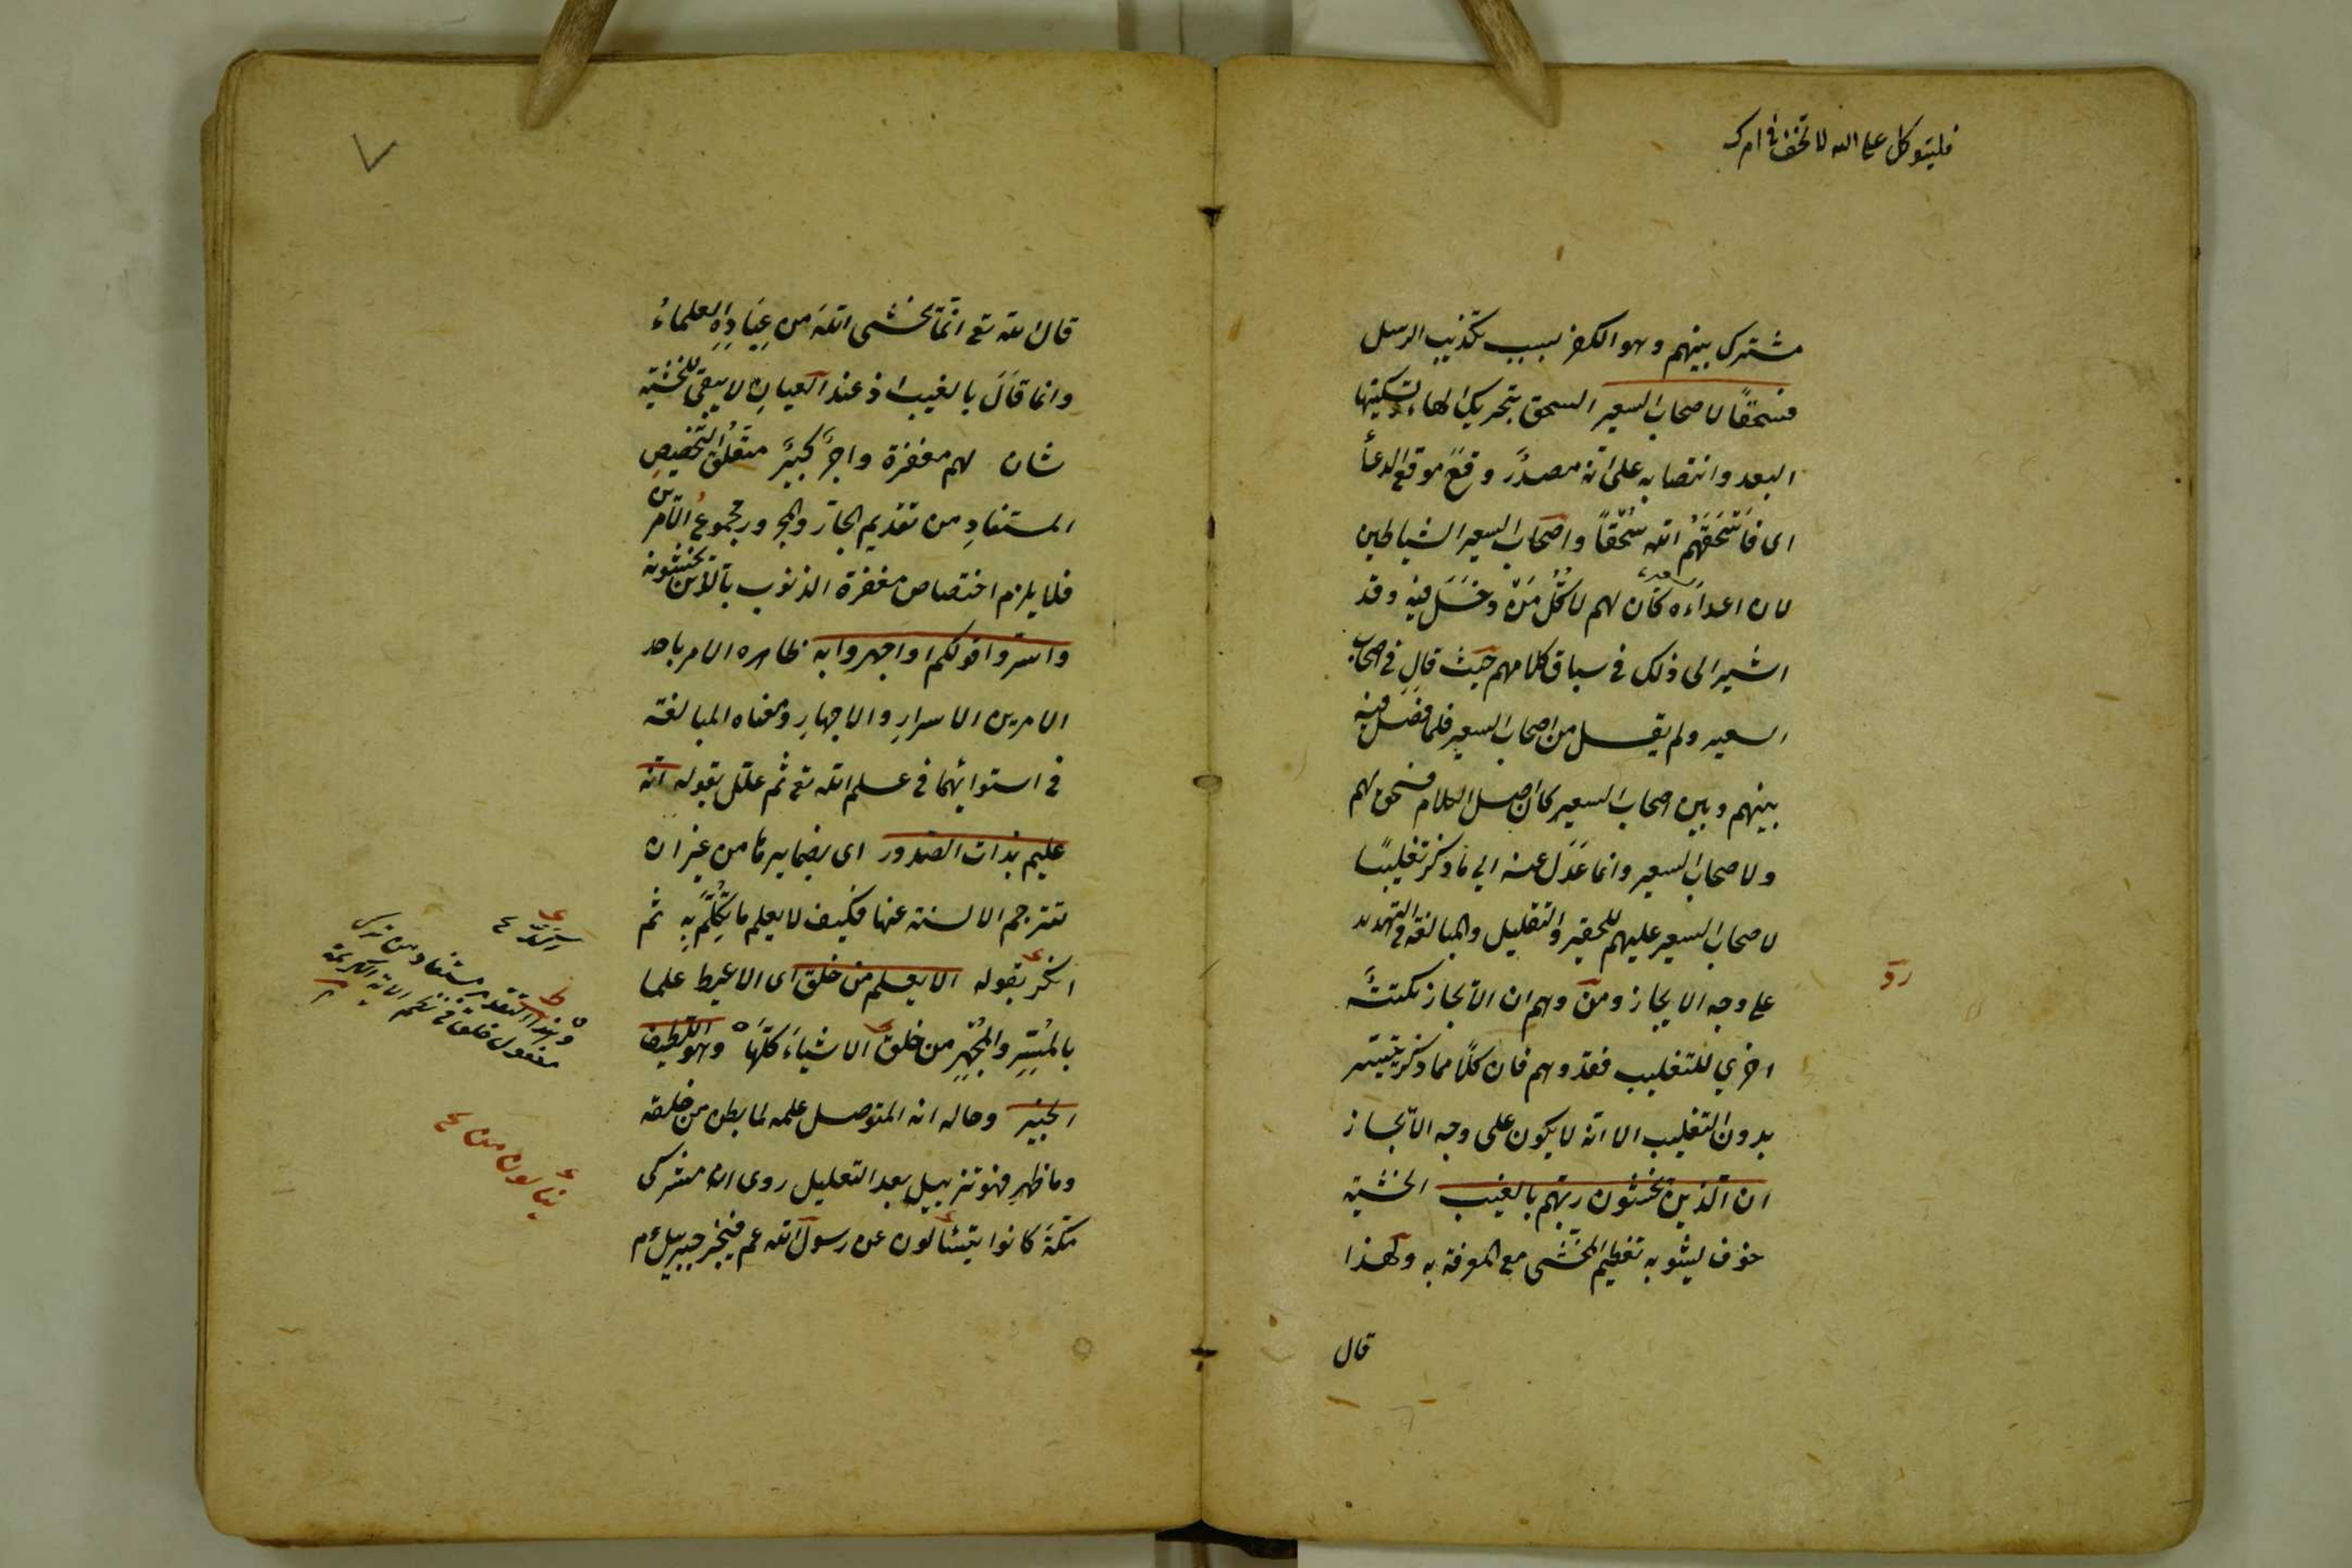 فليتوكل على الله لا تخف في امرك
مشترك بينهم وهو الكفر بسبب تكذيب الرسل
فسحقًا لاصحاب السعير السحق بتحريك الحاء وتسكينها
البعد وانتصابه على انه مصدرٌ وقع موقع الدعأ
اى فاسْحَقَهُم الله سُحْقًا واصحاب السعير الشياطين
لان اعداده كان لهم لا كُلُّ مَنْ دخَلَ فيه وقد
اشير الى ذلك في سياق كلامهم حيث قال في اصحاب
السعير ولم يقل من اصحاب السعير فلما فصل فيه
بينهم وبين اصحاب السعير كان اصل الكلام فسحق لهم
ولاصحاب السعير وانما عَدَلَ عنه الى ما ذكر تغليبًا
لاصحاب السعير عليهم للتحقير والتقليل والمبالغة في التهديد
على وجه الايجاز ومن وهم ان الايجاز نكتةٌ
رد
اخرى للتغليب فقد وهم فان كلًا مما ذكر يتيسر
بدون التغليب الا انه لا يكون على وجه الايجاز
ان الذين يخشون ربهم بالغيب الخشية
خوف يشوبه تعظيم المخشى مع المعرفة به ولهذا
قال
٧
قال الله تع انمّا يخشى اللهَ من عِبَادِهِ العلماءُ
وانما قَالَ بالغيب اذ عند العيان لا يبقى للخشية
شان لهم مغفرة واجرٌ كبيرٌ متعلّق التخصيص
المستفادِ من تقديم الجارّ والمجرور مجموعُ الامرين
فلا يلزم اختصاص مغفرة الذنوب بالذين يخشونه
واسرّوا قولكم او اجهروا به ظاهره الامر باحد
الامرين الاسرارِ والاجهارِ ومعناه المبالغة
في استوائهما في علم الله تع ثم علّل بقوله انه
عليم بذات الصدور اى بضمايرها من غير ان
تترجم الالسنة عنها فكيف لا يعلم ما يُتكلّمُ به ثم
انكر بقوله الا يعلم من خلق اى الا يحيط علما
بالمُسِرِّ والمُجْهِرِ من خلق الاشياءَ كلّهَا وهو اللطيف
الخبير وحاله انه المتوصل علمه لما بطن من خلقه
وما ظهر فهو تذييل بعد التعليل روى ان مشركى
مكة كانوا يتسئالون عن رسول الله عم فيخبر جبريل عم
وهذا التقدير مستفاد من ترك
مفعول خلق في نظم الاية الكريمة